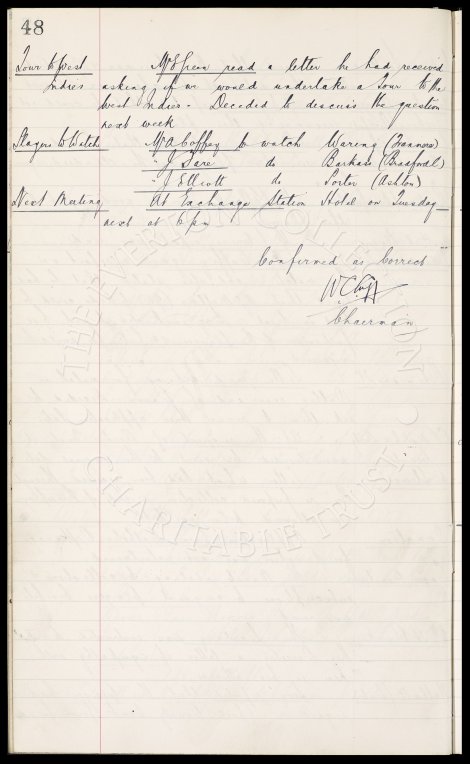 48
Tour to West Mr E Green read a letter he had received
Indies asking if we would undertake a Tour to the
West Indies - Decided to discuss the question
next week
Players to Watch Mr A Coffey to watch Waring (Tranmere)
" J Sare do Barkass (Bradford C)
" J Elliott do Porter (Ashton)
Next Meeting At Exchange Station Hotel on Tuesday
next at 6 pm
Confirmed as Correct
W. C. Cuff
Chairman
THE EVERTON COLLECTION
CHARITABLE TRUST